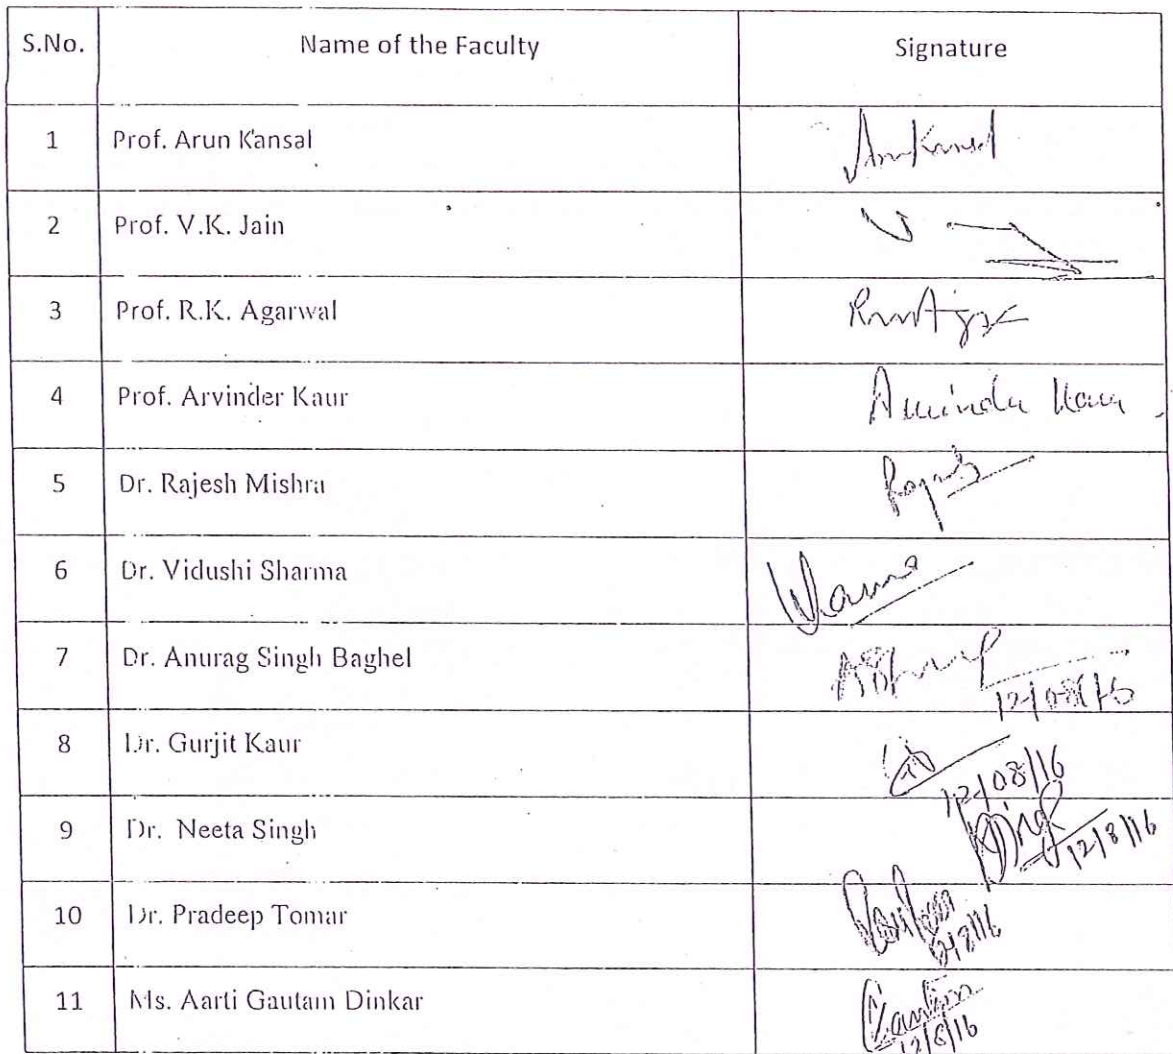 S.No. Name of the Faculty Signature
1 Prof. Arun Kansal
2 Prof. V.K. Jain
3 Prof. R.K. Agarwal
4 Prof. Arvinder Kaur Arvinder Kaur
5 Dr. Rajesh Mishra
6 Dr. Vidushi Sharma
7 Dr. Anurag Singh Baghel
12/08/16
8 Dr. Gurjit Kaur
12/08/16
9 Dr. Neeta Singh
12/8/16
10 Dr. Pradeep Tomar
11 Ms. Aarti Gautam Dinkar
12/8/16